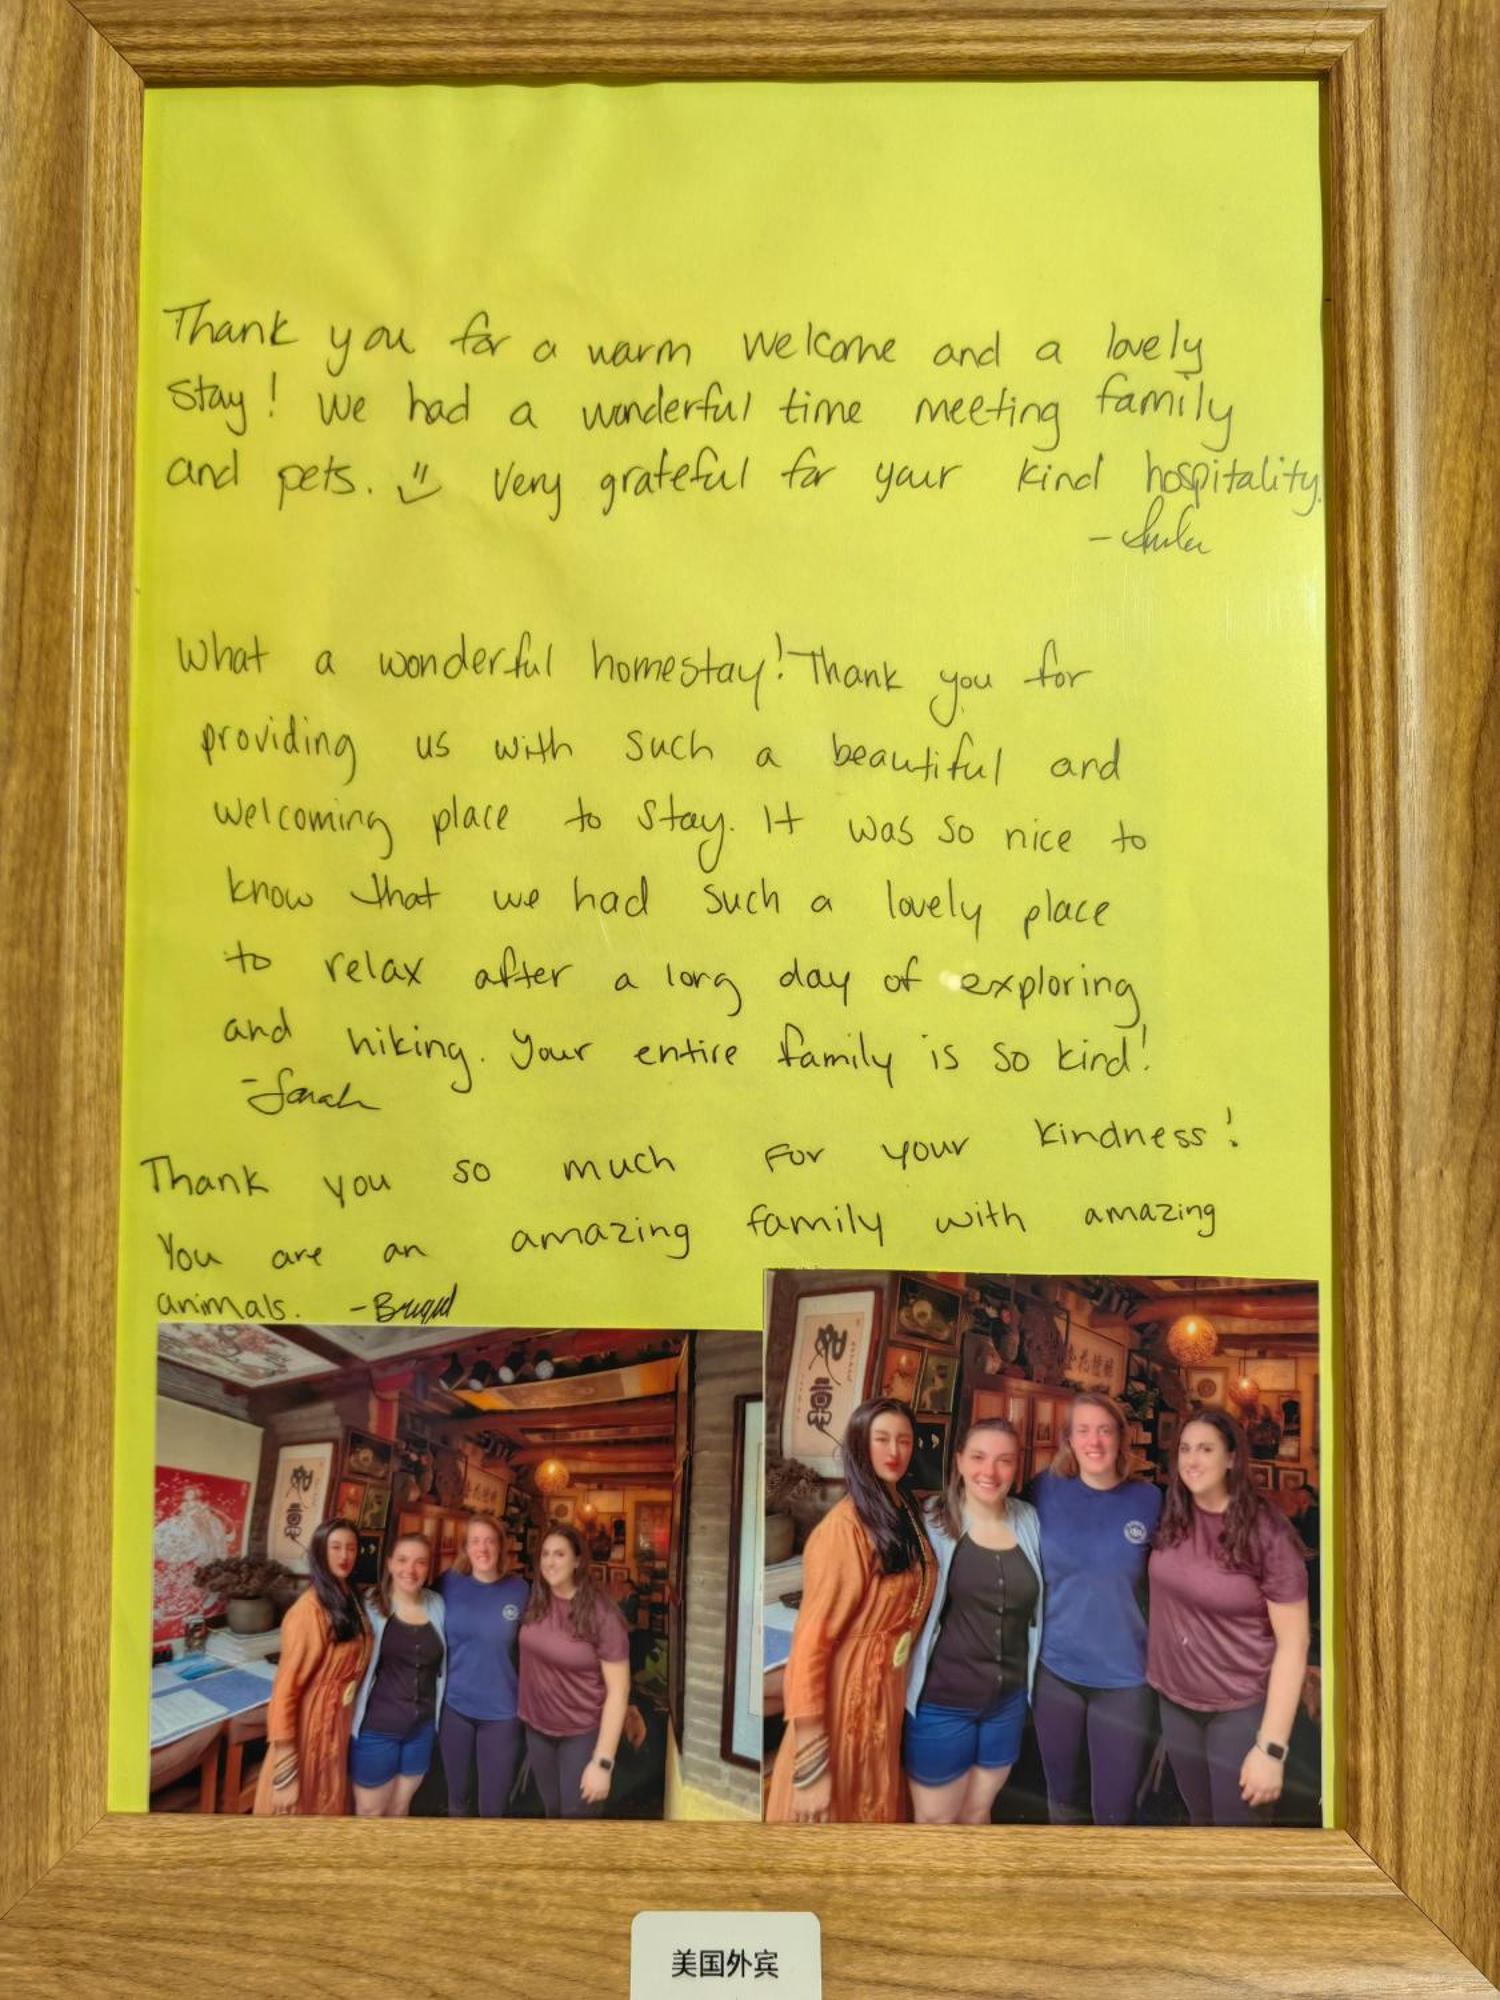 Thank you for a warm welcome and a lovely
stay! We had a wonderful time meeting family
and pets. Very grateful for your kind hospitality.
What a wonderful homestay! Thank you for
providing us with such a beautiful and
welcoming place to stay. It was so nice to
know that we had such a lovely place
to relax after a long day of exploring
and hiking. Your entire family is so kind!
-Sarah
Thank you so much for your kindness!
You are an amazing family with amazing
animals. -Brigid
美国外宾